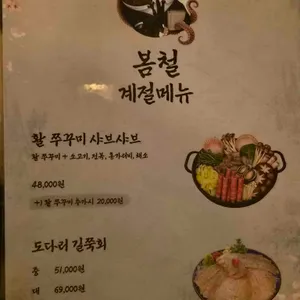 봄철
계절메뉴
활 쭈꾸미 샤브샤브
활 쭈꾸미 + 소고기, 전복, 홍가리비, 채소
48,000원
+) 활 쭈꾸미 추가시 20,000원
도다리 길쭉회
중 51,000원
대 69,000원